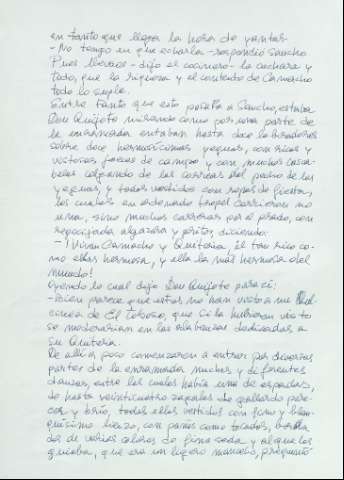 en tanto que llega la hora de yantar.
- No tengo en que echarla - respondió Sancho
Pues llevaos - dijo el cocinero - la cuchara y
todo, que la riqueza y el contento de Camacho
todo lo suple.
Entre tanto que esto pasaba a Sancho, estaba
Don Quijote mirando como por una parte de
la enramada entraban hasta doce labradores
sobre doce hermosísimas yeguas, con ricos y
vistosos jaeces de campo y con muchos casca-
beles colgando de las correas del pecho de las
yeguas, y todos vestidos con ropas de fiesta,
los cuales en ordenado tropel corrieron no
una, sino muchas carreras por el prado, con
regocijada algazara y gritos, diciendo:
- ¡Vivan Camacho y Quiteria, él tan rico co-
mo ella hermosa, y ella la más hermosa del
mundo!
Oyendo lo cual dijo Don Quijote para sí:
- Bien parece que estos no han visto a mi Dul-
cinea de El Toboso, que si la hubieran visto
se moderarian en las alabanzas dedicadas a
su Quiteria.
De allí a poco comenzaron a entrar por diversas
partes de la enramada muchas y diferentes
danzas, entre las cuales había una de espadas,
de hasta veinticuatro zagales de gallardo pare-
cer y brío, todos ellos vestidos con fino y blan-
quísimo lienzo, con paños como tocados, borda-
dos de varios colores de fina seda y al que los
guiaba, que era un ligero mancebo, preguntó